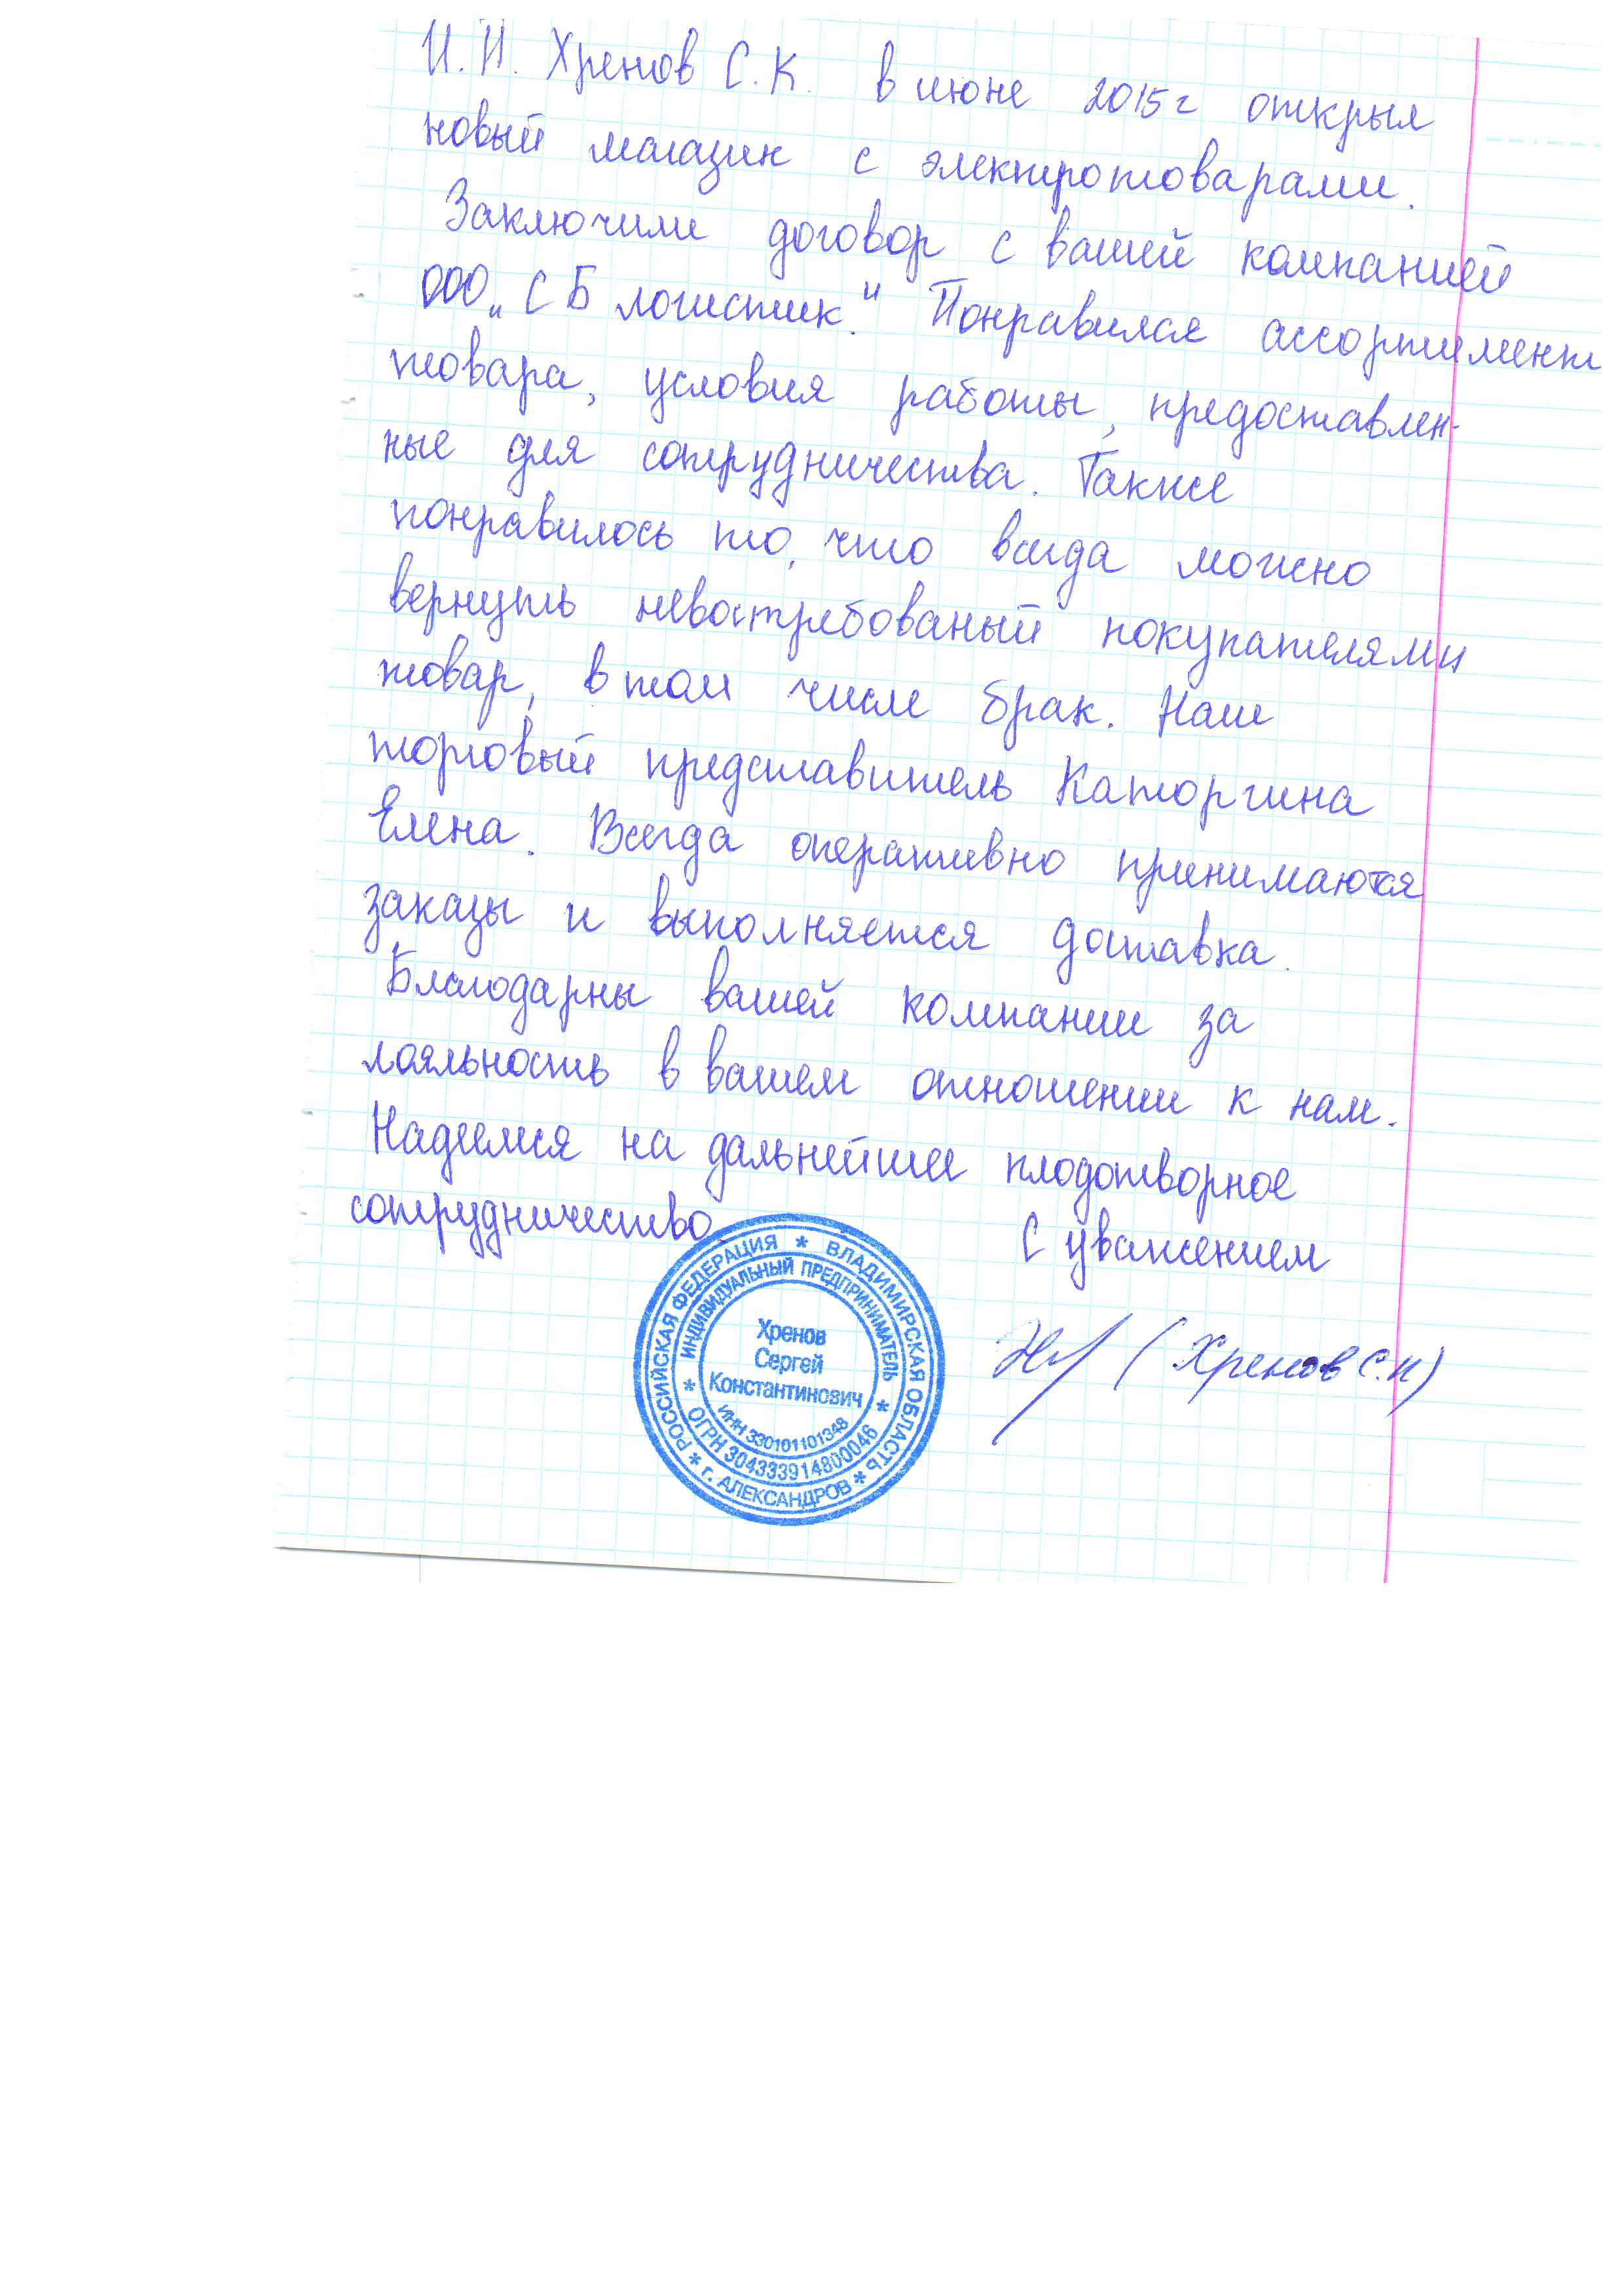 И.П. Хренов С.К. в июне 2015г открыл
новый магазин с электротоварами.
Заключили договор с вашей компанией
ООО „СБ логистик." Понравился ассортимент
товара, условия работы, предоставлен-
ные для сотрудничества. Также
понравилось то, что всегда можно
вернуть невостребованый покупателями
товар, в том числе брак. Наш
торговый представитель Каторгина
Елена. Всегда оперативно принимаются
заказы и выполняется доставка.
Благодарны вашей компании за
лояльность в вашем отношении к нам.
Надеемся на дальнейшее плодотворное
сотрудничество.
С уважением
(Хренов С.К)
РОССИЙСКАЯ ФЕДЕРАЦИЯ * ВЛАДИМИРСКАЯ ОБЛАСТЬ * г. АЛЕКСАНДРОВ *
ИНДИВИДУАЛЬНЫЙ ПРЕДПРИНИМАТЕЛЬ *
ОГРН 304333914800046 *
Хренов
Сергей
Константинович
ИНН 330101101348